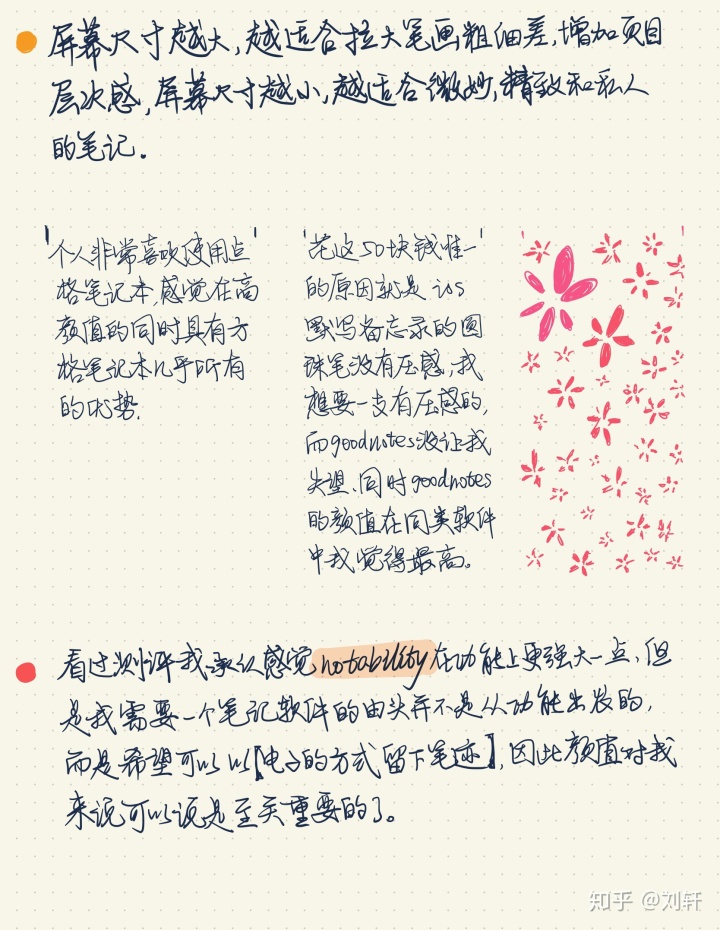 屏幕尺寸越大,越适合拉大笔画粗细差,增加项目
层次感,屏幕尺寸越小,越适合微妙,精致和私人
的笔记.
个人非常喜欢使用点
格笔记本,感觉在高
颜值的同时具有方
格笔记本几乎所有
的优势.
花这50块钱唯一
的原因就是 ios
默写备忘录的圆
珠笔没有压感,我
想要一支有压感的,
而goodnotes没让我
失望、同时goodnotes
的颜值在同类软件
中我觉得最高。
看过测评我承认感觉notability在功能上更强大一点,但
是我需要一个笔记软件的由头并不是从功能出发的,
而是希望可以以【电子的方式留下笔迹】,因此颜值对我
来说可以说是至关重要的了。
知乎 @刘轩